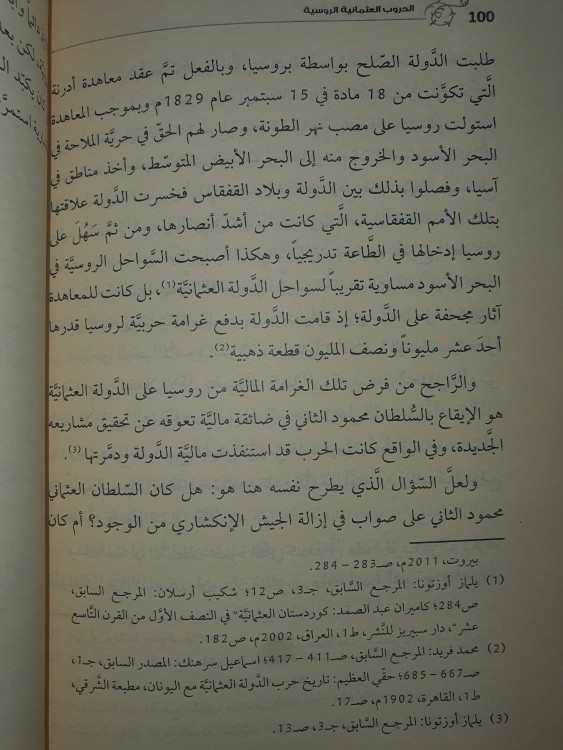 100
الحروب العثمانية الروسية
طلبت الدَّولة الصّلح بواسطة بروسيا، وبالفعل تمَّ عقد معاهدة أدرنة
الَّتي تكوَّنت من 18 مادة في 15 سبتمبر عام 1829م وبموجب المعاهدة
استولت روسيا على مصب نهر الطونة، وصار لهم الحقّ في حريَّة الملاحة في
البحر الأسود والخروج منه إلى البحر الأبيض المتوسّط، وأخذ مناطق في
آسيا، وفصلوا بذلك بين الدَّولة وبلاد القفقاس فخسرت الدَّولة علاقتها
بتلك الأمم القفقاسية، الَّتي كانت من أشدّ أنصارها، ومن ثمَّ سَهُلَ على
روسيا إدخالها في الطَّاعة تدريجياً، وهكذا أصبحت السَّواحل الروسيَّة في
البحر الأسود مساوية تقريباً لسواحل الدَّولة العثمانيَّة(1)، بل كانت للمعاهدة
آثار مجحفة على الدَّولة؛ إذ قامت الدَّولة بدفع غرامة حربيَّة لروسيا قدرها
أحدَ عشر مليوناً ونصف المليون قطعة ذهبية(2).
والرَّاجح من فرض تلك الغرامة الماليَّة من روسيا على الدَّولة العثمانيَّة
هو الإيقاع بالسُّلطان محمود الثاني في ضائقة ماليَّة تعوقه عن تحقيق مشاريعه
الجَّديدة، وفي الواقع كانت الحرب قد استنفذت ماليَّة الدَّولة ودمَّرتها(3).
ولعلَّ السّؤال الَّذي يطرح نفسه هنا هو: هل كان السّلطان العثماني
محمود الثاني على صواب في إزالة الجيش الإنكشاري من الوجود؟ أم كان
بيروت، 2011م، صـ283 – 284.
(1) يلماز أوزتونا: المرجع السَّابق، جـ3، ص12؛ شكيب أرسلان: المرجع السابق،
ص284؛ كاميران عبد الصمد: كوردستان العثمانيَّة" في النصف الأوَّل من القرن التَّاسع
عشر"، دار سبيريز للنَّشر، ط1، العراق، 2002م، ص182.
(2) محمد فريد: المرجع السَّابق، صـ411 – 417؛ اسماعيل سرهنك: المصدر السابق، جـ1،
صـ667 – 685؛ حقّي العظيم: تاريخ حرب الدَّولة العثمانيَّة مع اليونان، مطبعة الشَّرقي،
ط1، القاهرة، 1902م، صـ17.
(3) يلماز أوزتونا: المرجع السَّابق، جـ3، صـ13.